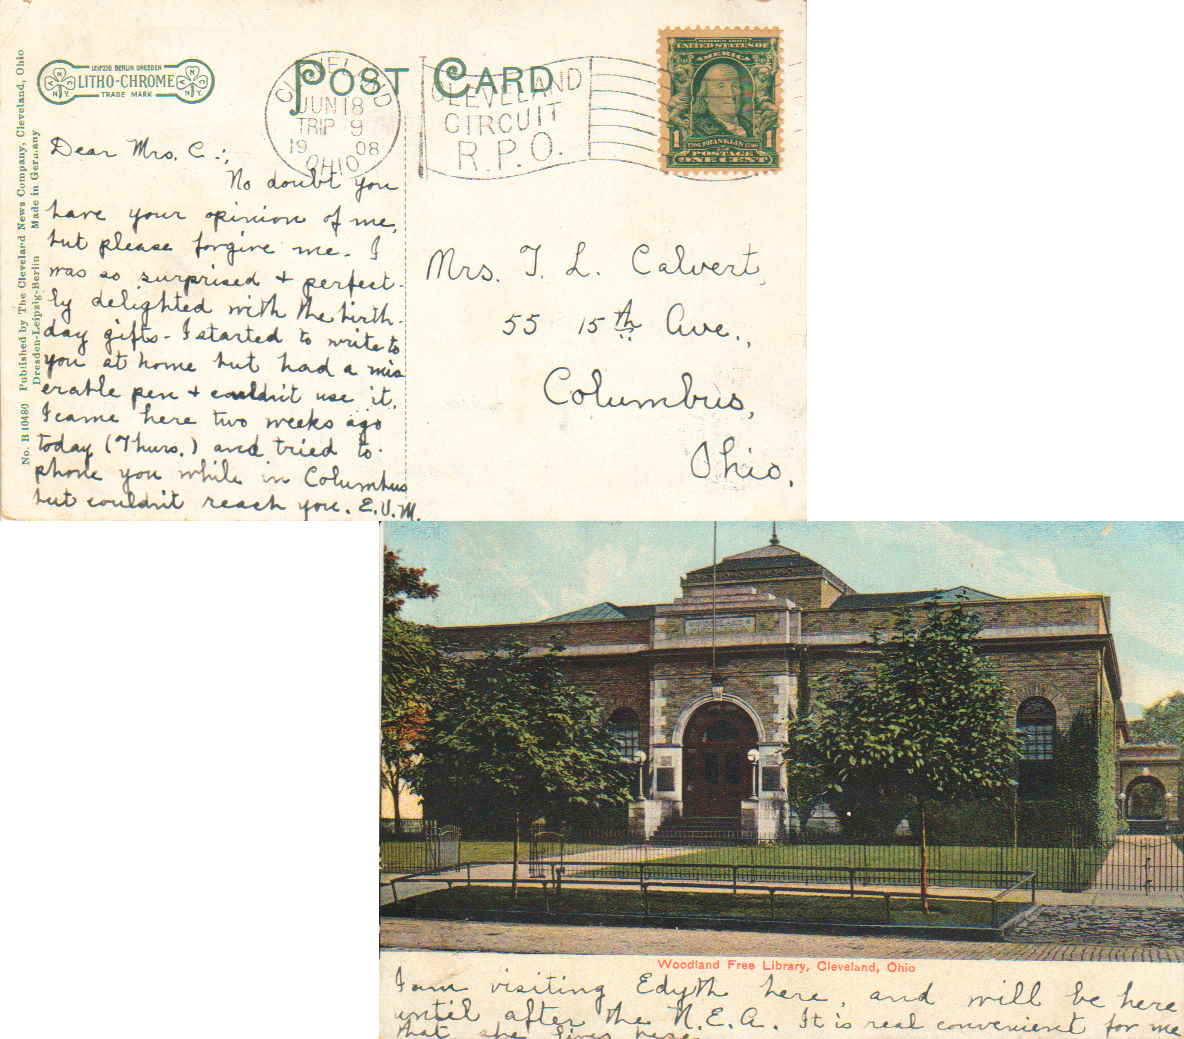 No. B 10480 Published by The Cleveland News Company, Cleveland, Ohio
Dresden-Leipzig-Berlin Made in Germany
LEIPZIG BERLIN DRESDEN
LITHO-CHROME
TRADE MARK
ANC
N.Y.
ANC
N.Y.
POST CARD
CLEVELAND
JUN 18
TRIP 9
19 08
OHIO
CLEVELAND
CIRCUIT
R.P.O.
UNITED STATES OF
AMERICA
1 1706 FRANKLIN 1790 1
POSTAGE
ONE CENT
Dear Mrs. C.:,
No doubt you
have your opinion of me,
but please forgive me. I
was so surprised + perfect-
ly delighted with the birth-
day gifts - I started to write to
you at home but had a mis
erable pen + couldn't use it.
I came here two weeks ago
today (Thurs.) and tried to
phone you while in Columbus
but couldn't reach you. E.V.M.
Mrs. T. L. Calvert,
55 15th Ave.,
Columbus,
Ohio.
Woodland Free Library, Cleveland, Ohio
I am visiting Edyth here, and will be here
until after the N.E.A. It is real convenient for me
that she lives here.